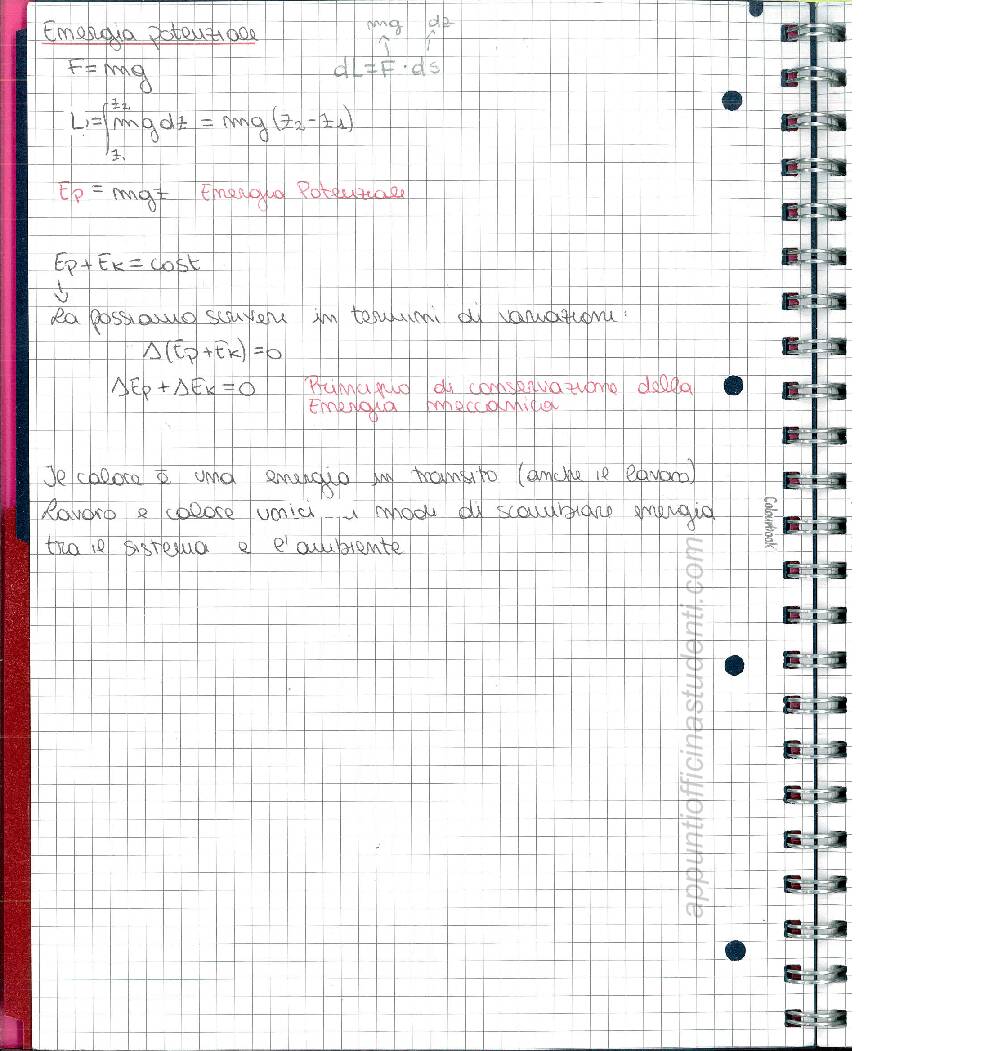 Energia potenziale
mg dz
F = mg
dL = F · ds
L = ∫ z₂ z₁ mg dz = mg (z₂ - z₁)
Ep = mgz Energia Potenziale
Ep + Ek = cost
↓
La possiamo scrivere in termini di variazione:
Δ(Ep + Ek) = 0
ΔEp + ΔEk = 0 Principio di conservazione della
Energia meccanica
Il calore è una energia in transito (anche il lavoro)
Lavoro e calore unici i modi di scambiare energia
tra il sistema e l'ambiente
Colourbook
appuntiofficinastudenti.com